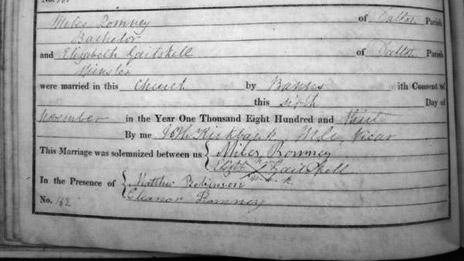 Miles Romney of Dalton Parish
Bachelor
and Elizabeth Gaitskell of Dalton Parish
Spinster
were married in this Church by Banns with Consent of
this sixth Day of
November in the Year One Thousand Eight Hundred and
By me Kirkbank, Vicar
This Marriage was solemnized between us { Miles Romney
Gaitskell
In the Presence of { Matthew Robinson
No. 162 Eleanor Romney